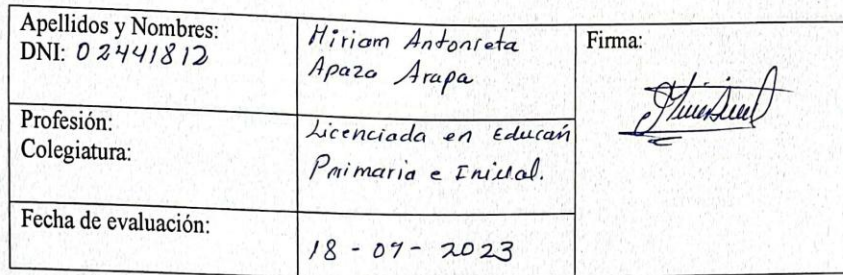 Apellidos y Nombres:
DNI: 02441812
Hiriam Antonieta
Apaza Arapa
Firma:
Profesión:
Colegiatura:
Licenciada en Educań
Primaria e Inicial.
Fecha de evaluación:
18 - 07 - 2023